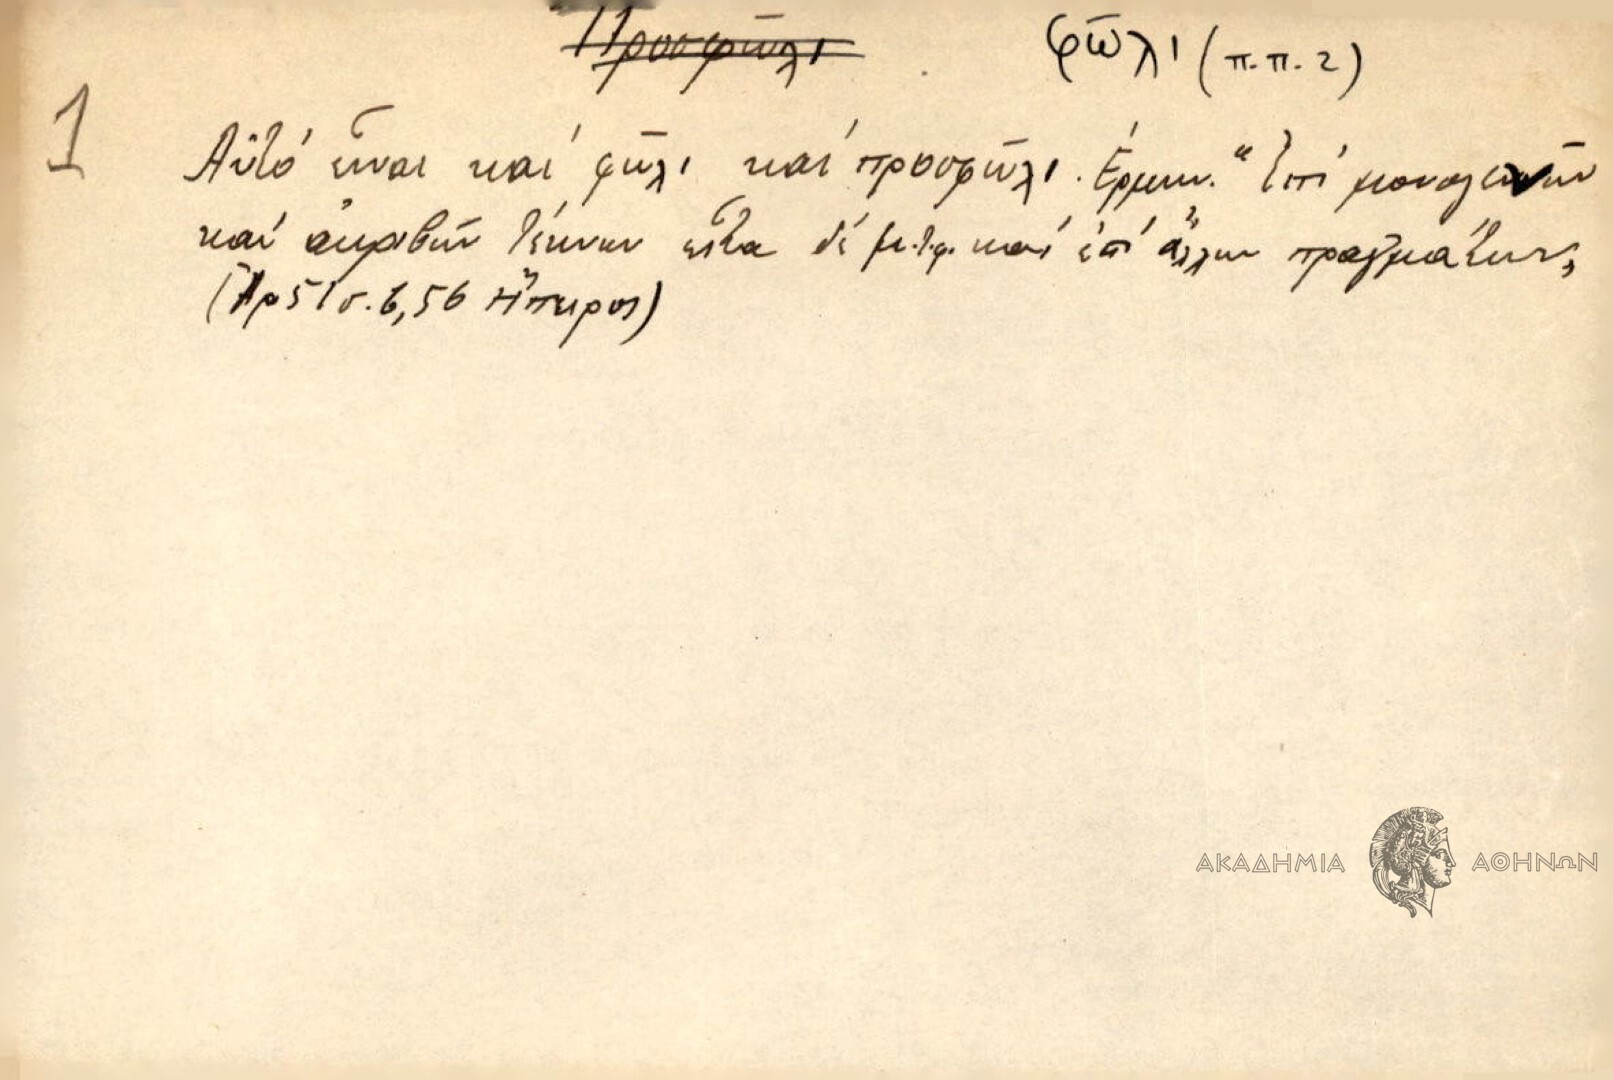 Προσφῶλι φῶλι (π.π. 2)
1 Αὐτό εἶναι καί φῶλι καί προσφῶλι. Ἑρμην. "Ἐπί μονογενῶν
καί ἀκριβῶν τέκνων εἶτα δέ μ.τ.φ. καί ἐπί ἄλλων πραγμάτων,,
(Ἀρ 51 σ. 6, 56 Ἤπειρος)
ΑΚΑΔΗΜΙΑ ΑΘΗΝΩΝ